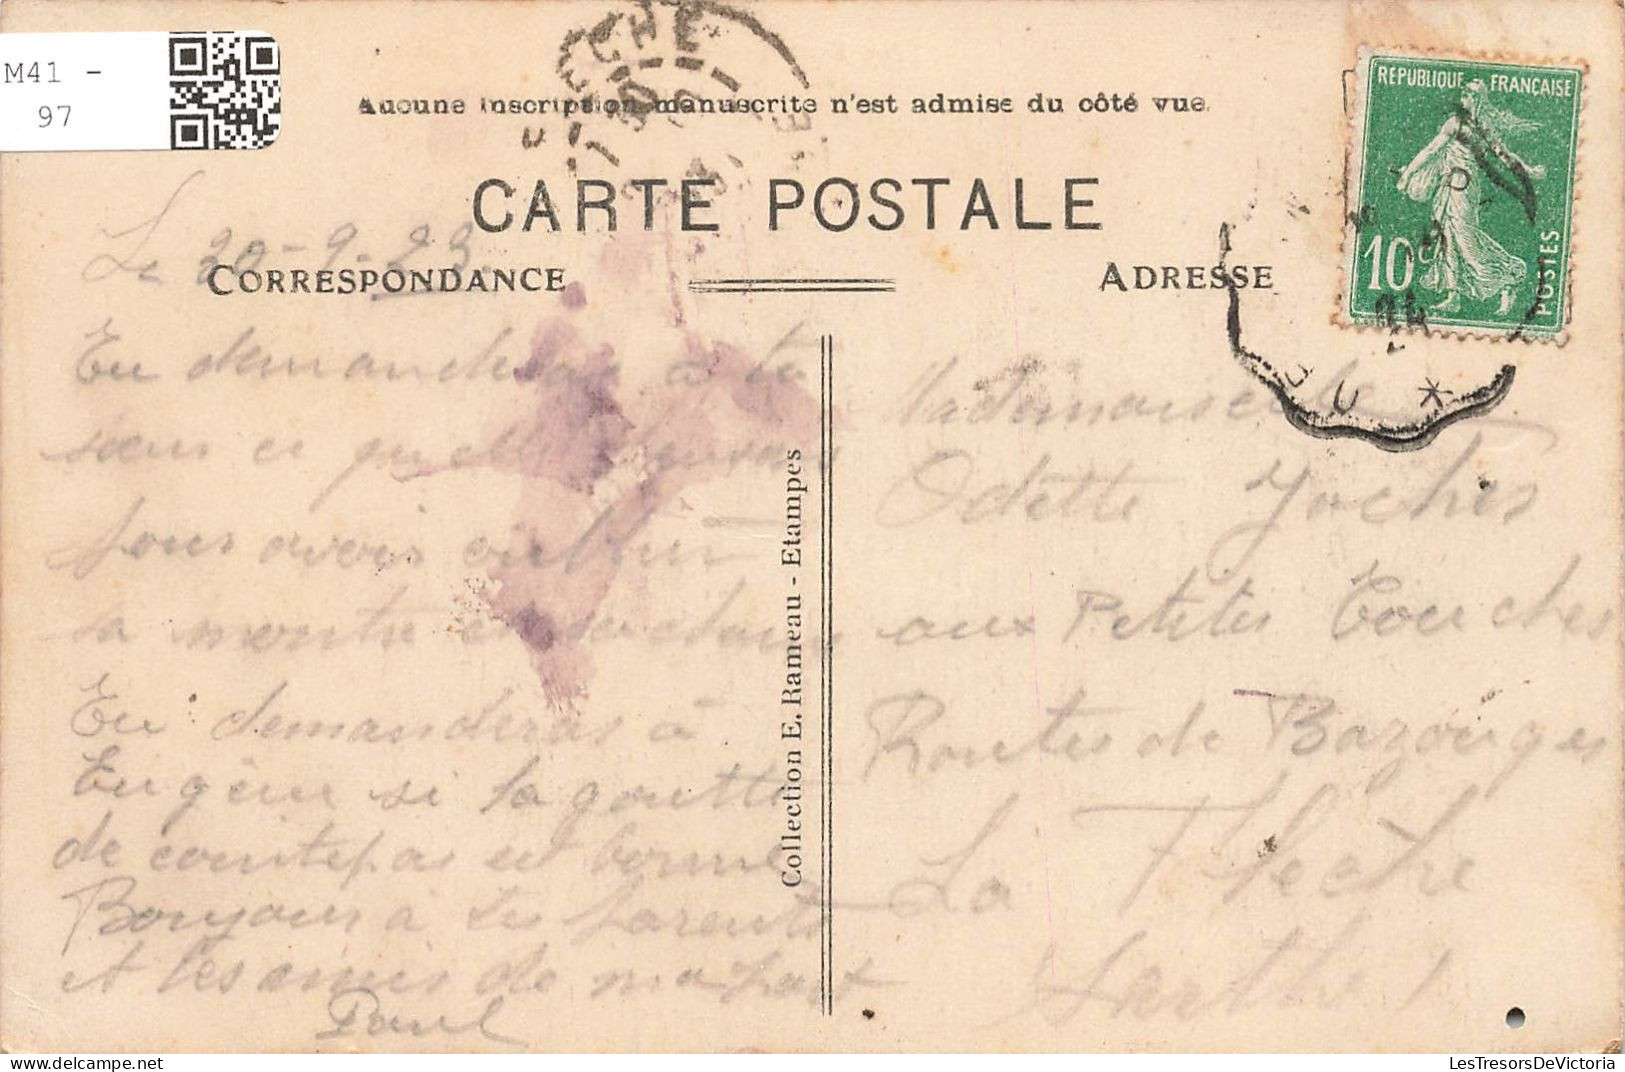 M41 -
97
Aucune inscription manuscrite n'est admise du côté vue.
REPUBLIQUE FRANÇAISE
10
POSTES
CARTE POSTALE
Le 20-9-23
CORRESPONDANCE
ADRESSE
Tu demanderas à ta
sœur ce
pour avoir
sa montre
Tu demanderas à
Eugène si la goutte
de est bonne
Bonjour à tes parents
et les amis de ma part
Paul
Collection E. Rameau - Etampes
Mademoiselle
Odette
aux Petites Touches
Routes de Bazouges
La Flèche
Sarthe
LesTresorsDeVictoria